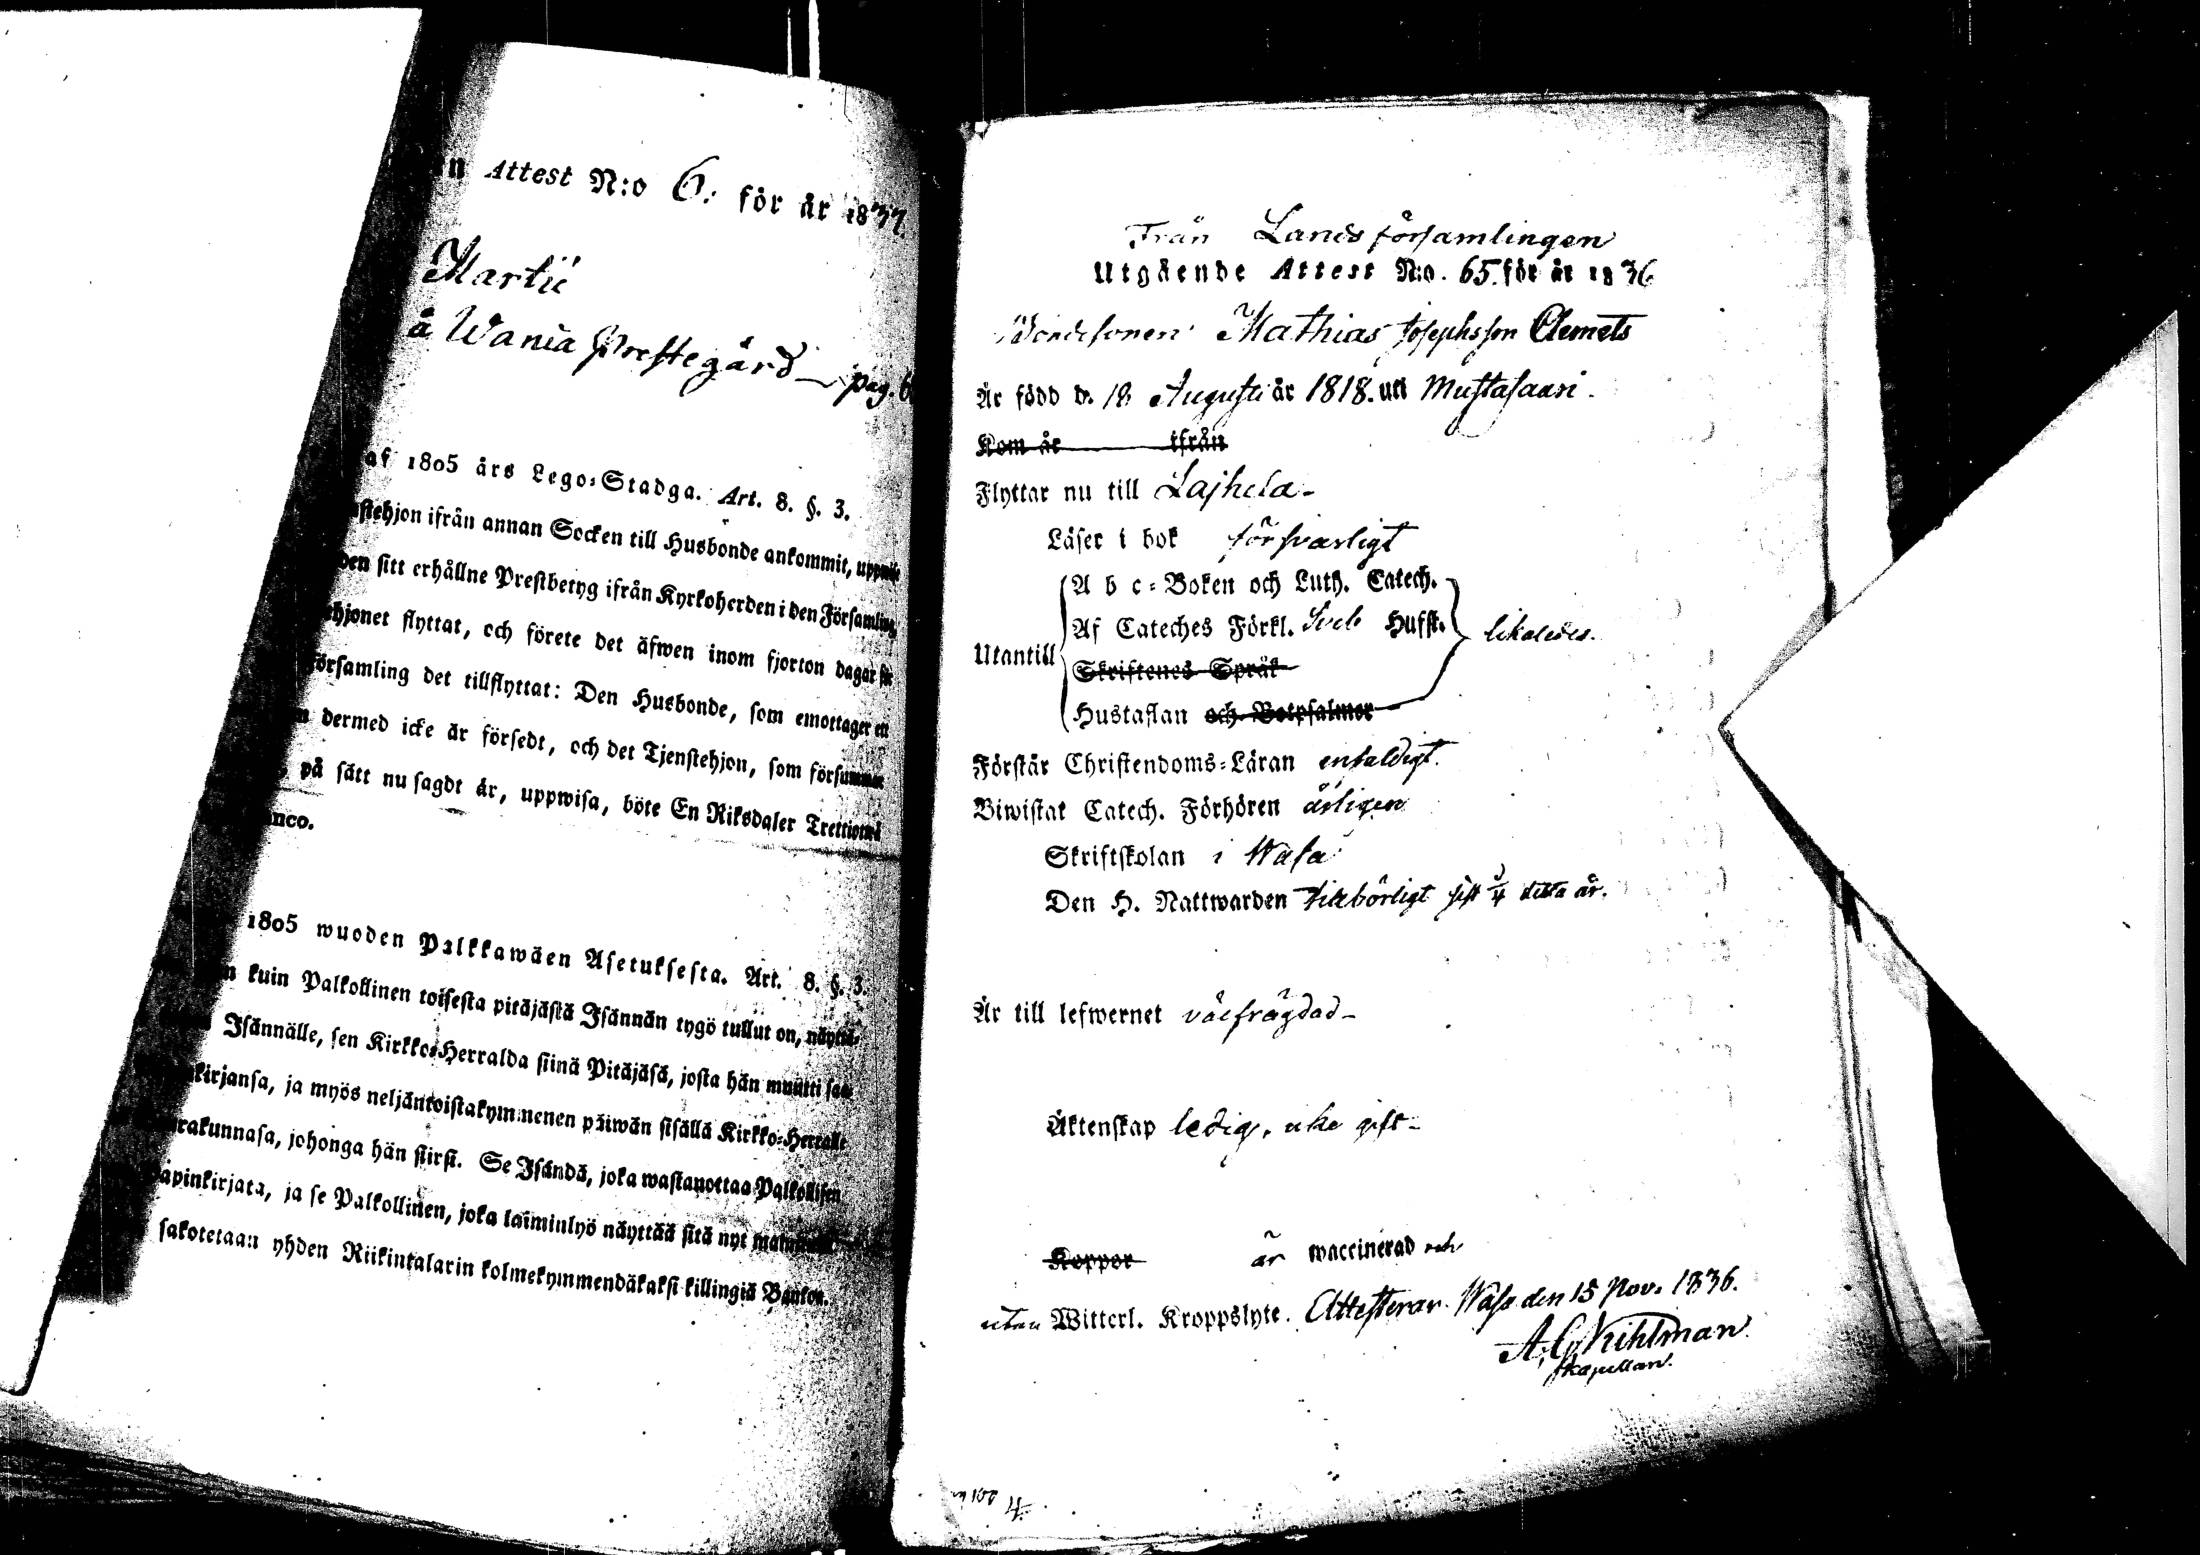 n Attest N:o 6. för år 1837.
Martii
å Wania Prestegård pag. 6
af 1805 års Lego-Stadga. Art. 8. §. 3.
stehjon ifrån annan Socken till Husbonde ankommit, uppwise
den sitt erhållne Prestbetyg ifrån Kyrkoherden i den Församling
ehjonet flyttat, och förete det äfwen inom fjorton dagar för
församling det tillflyttat: Den Husbonde, som emottager ett
dermed icke är försedt, och det Tjenstehjon, som försummar
på sätt nu sagdt är, uppwisa, böte En Riksdaler Trettiotwå
anco.
1805 wuoden Palkkawäen Asetuksesta. Art. 8. §. 3.
n kuin Palkollinen toisesta pitäjästä Isännän tygö tullut on, näyttä-
Isännälle, sen Kirkko-Herralda siinä Pitäjäsä, josta hän muutti saa
kirjansa, ja myös neljäntoistakymmenen päiwän sisällä Kirkko-Herralle
rakunnasa, johonga hän siirsi. Se Isändä, joka wastanottaa Palkollisen
apinkirjata, ja se Palkollinen, joka laiminlyö näyttää sitä nyt
sakotetaan yhden Riikintalarin kolmekymmendäkaksi killingiä Bankos.
Från Landsförsamlingen
Utgående Attest N:o. 65. för år 1836
Bondesonen Mathias Josephsson Clemets
Är född d. 18 Augusti år 1818. uti Mustasaari.
Kom år ifrån
Flyttar nu till Lajhela
Läser i bok försvarligt
A b c-Boken och Luth. Catech.
Af Cateches Förkl. Sveb Hufst. likaledes.
Utantill
Skriftenes Språk
Hustaflan och Botpsalmer
Förstår Christendoms-Läran enfaldigt.
Biwistat Catech. Förhören årligen
Skriftskolan i Wasa
Den H. Nattwarden tillbörligt sist detta år.
Är till lefwernet välfrägdad
Äktenskap ledig, icke gift
Koppor är waccinerad och
utan Witterl. Kroppslyte. Attesterar. Wasa den 15 Nov. 1836.
A. G. Kihlman.
Kapellan.